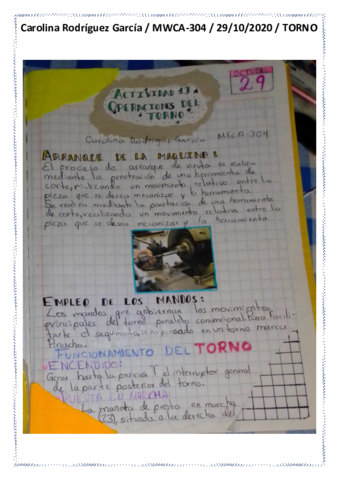 Carolina Rodríguez García / MWCA-304 / 29/10/2020 / TORNO
OCTUBRE
29
ACTIVIDAD 13
OPERACIONES DEL
TORNO
Carolina Rodríguez García MECA-304
ARRANQUE DE LA MAQUINA:
El proceso de arranque de viruta se realiza
mediante la penetración de una herramienta de
corte, realizando un movimiento relativo entre la
pieza que se desea mecanizar y la herramienta.
Se realiza mediante la penetración de una herramienta
de corte, realizando un movimiento relativo entre la
pieza que se desea mecanizar y la herramienta.
EMPLEO DE LOS MANDOS:
Los mandos que gobiernan los movimientos
principales del torno paralelo convencional. Para facili-
tarte el seguimiento basado en un torno marca
Pinacho.
FUNCIONAMIENTO DEL TORNO
ENCENDIDO:
Girar hasta la posición 1 el interruptor general
de la parte posterior del torno.
PUESTA EN MARCHA:
La maneta de puesta en marcha
(23), situada a la derecha del